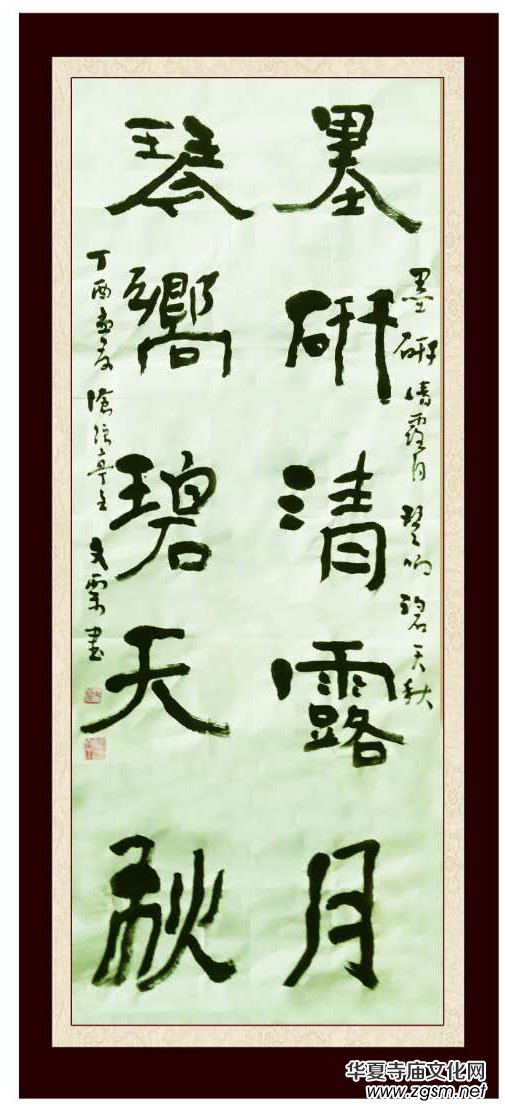 墨研清露月 琴响碧天秋
墨研清露月
琴嚮碧天秋
丁酉孟夏 亭主 文 書
华夏寺庙文化网
www.zgsm.net